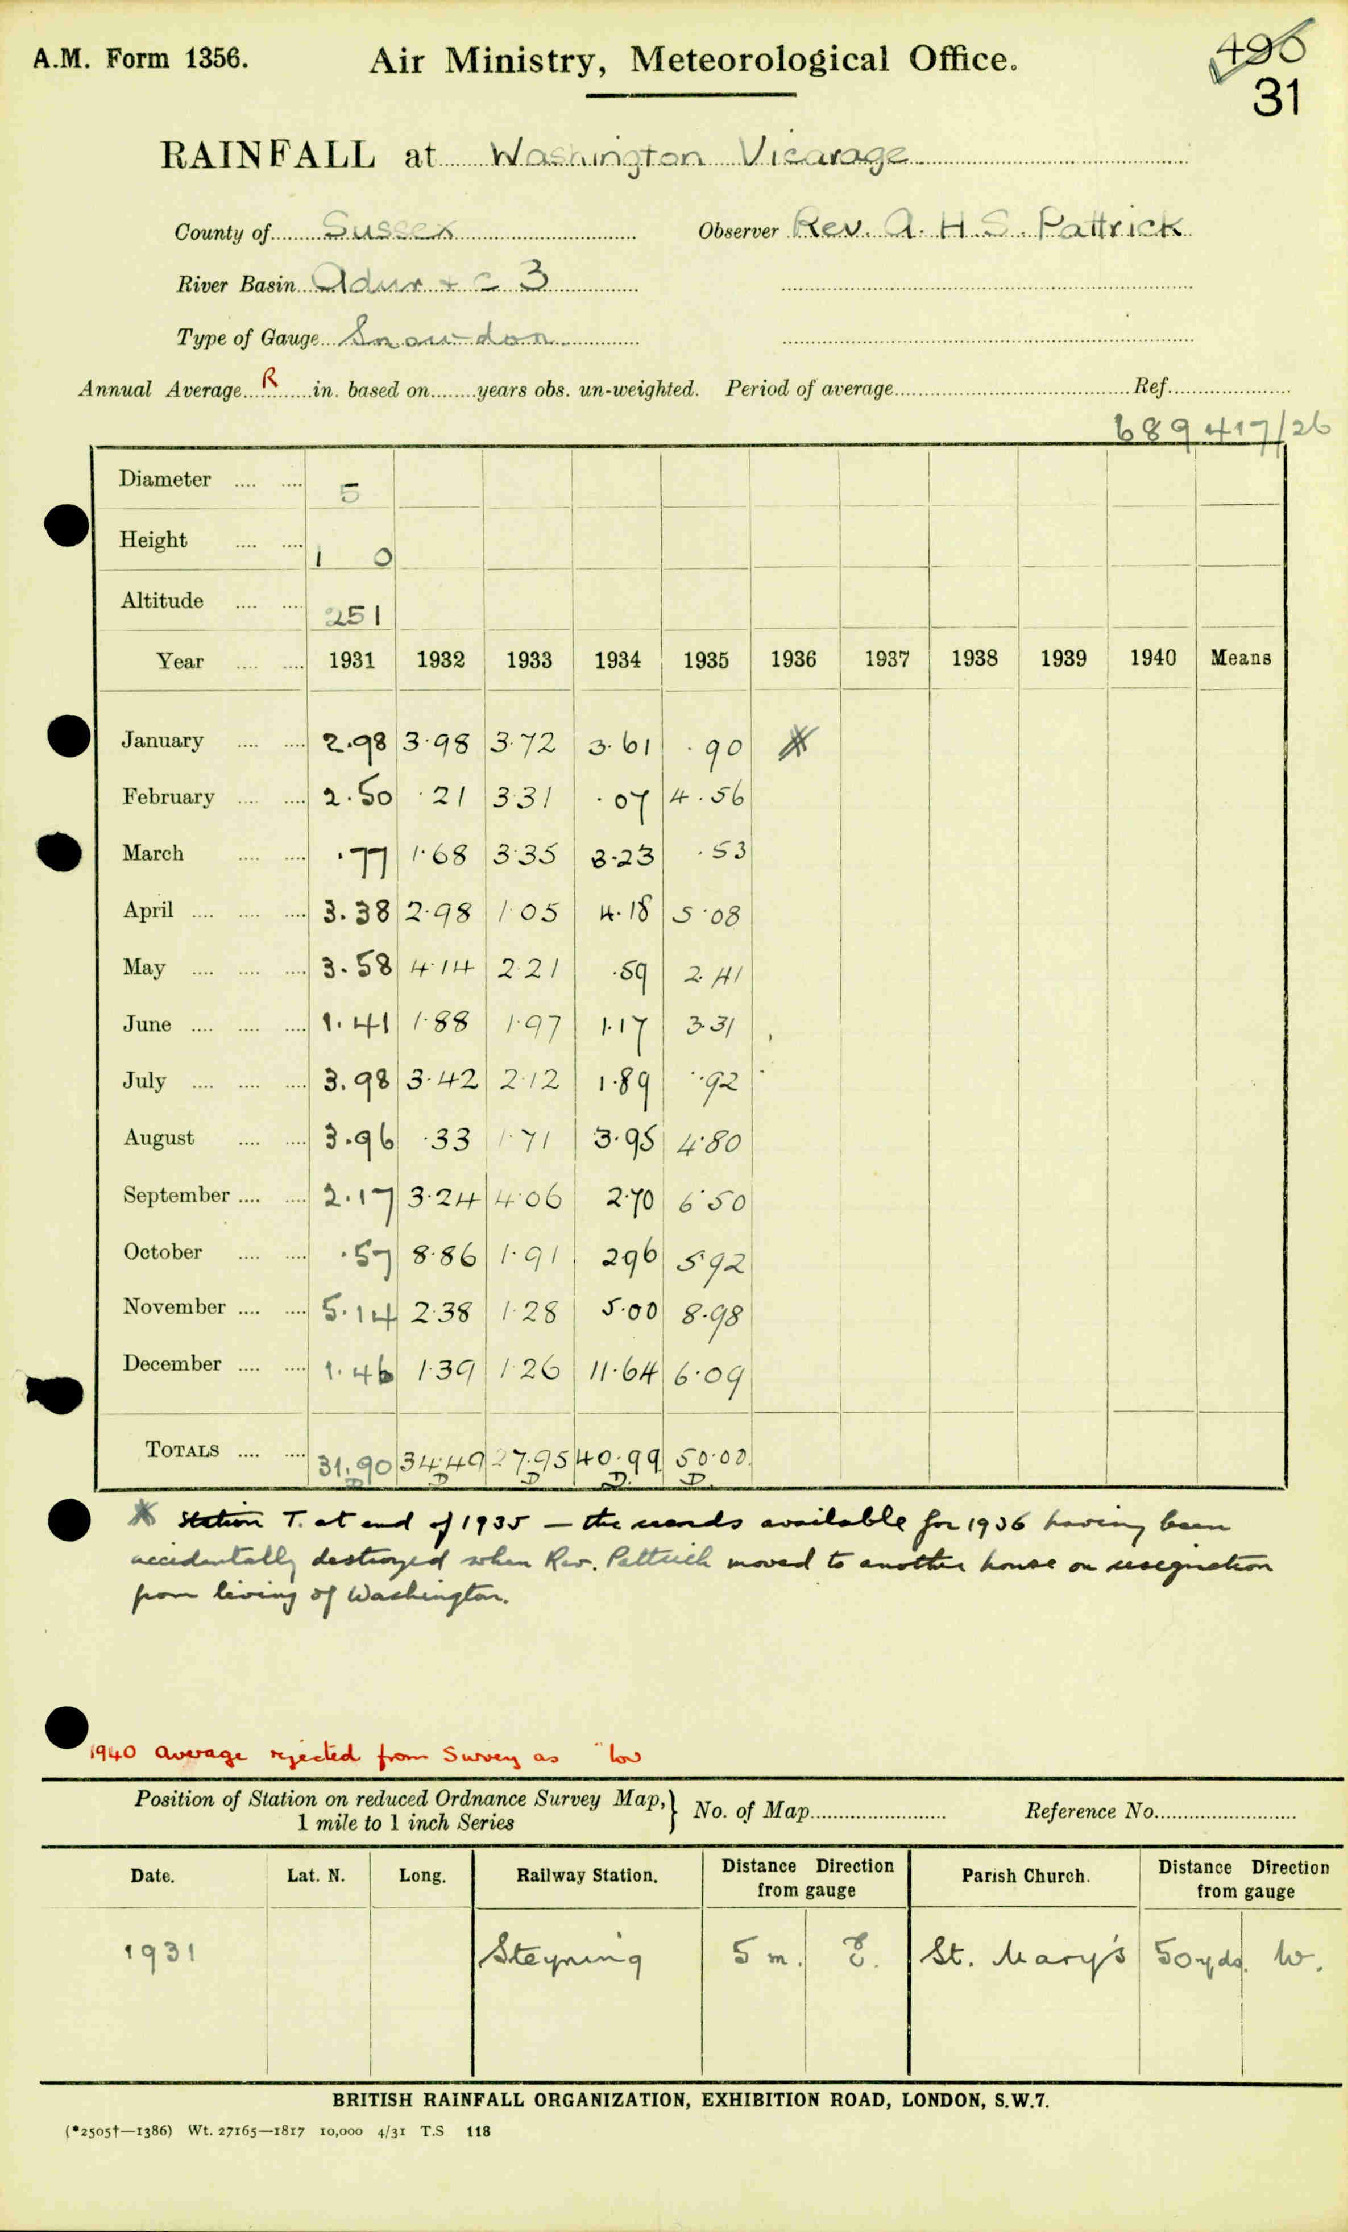 A.M. Form 1356. Air Ministry, Meteorological Office. 496
31
RAINFALL at Washington Vicarage
County of Sussex Observer Rev. A. H. S. Pattrick
River Basin Adur + c 3
Type of Gauge Snowdon
Annual Average R in. based on ........ years obs. un-weighted. Period of average ........ Ref. ........
689 417/26
Diameter .... .... 5
Height .... .... 1 0
Altitude .... .... 251
Year .... .... 1931 1932 1933 1934 1935 1936 1937 1938 1939 1940 Means
January .... .... 2.98 3.98 3.72 3.61 .90 *
February .... .... 2.50 .21 3.31 .07 4.56
March .... .... .77 1.68 3.35 3.23 .53
April .... .... .... 3.38 2.98 1.05 4.18 5.08
May .... .... .... 3.58 4.14 2.21 .59 2.41
June .... .... .... 1.41 1.88 1.97 1.17 3.31
July .... .... .... 3.98 3.42 2.12 1.89 .92
August .... .... 3.96 .33 1.71 3.95 4.80
September .... .... 2.17 3.24 4.06 2.70 6.50
October .... .... .57 8.86 1.91 2.96 5.92
November .... .... 5.14 2.38 1.28 5.00 8.98
December .... .... 1.46 1.39 1.26 11.64 6.09
TOTALS .... .... 31.90 34.49 27.95 40.99 50.00
D D D D. D.
* Station T. at end of 1935 — the records available for 1936 having been
accidentally destroyed when Rev. Pattrick moved to another house on resignation
from living of Washington.
1940 average rejected from Survey as "low
Position of Station on reduced Ordnance Survey Map, } No. of Map ........ Reference No. ........
1 mile to 1 inch Series
Date. Lat. N. Long. Railway Station. Distance Direction from gauge Parish Church. Distance Direction from gauge
1931 Steyning 5 m. E. St. Mary's 50 yds. W.
BRITISH RAINFALL ORGANIZATION, EXHIBITION ROAD, LONDON, S.W.7.
(*2505†—1386) Wt. 27165—1817 10,000 4/31 T.S 118